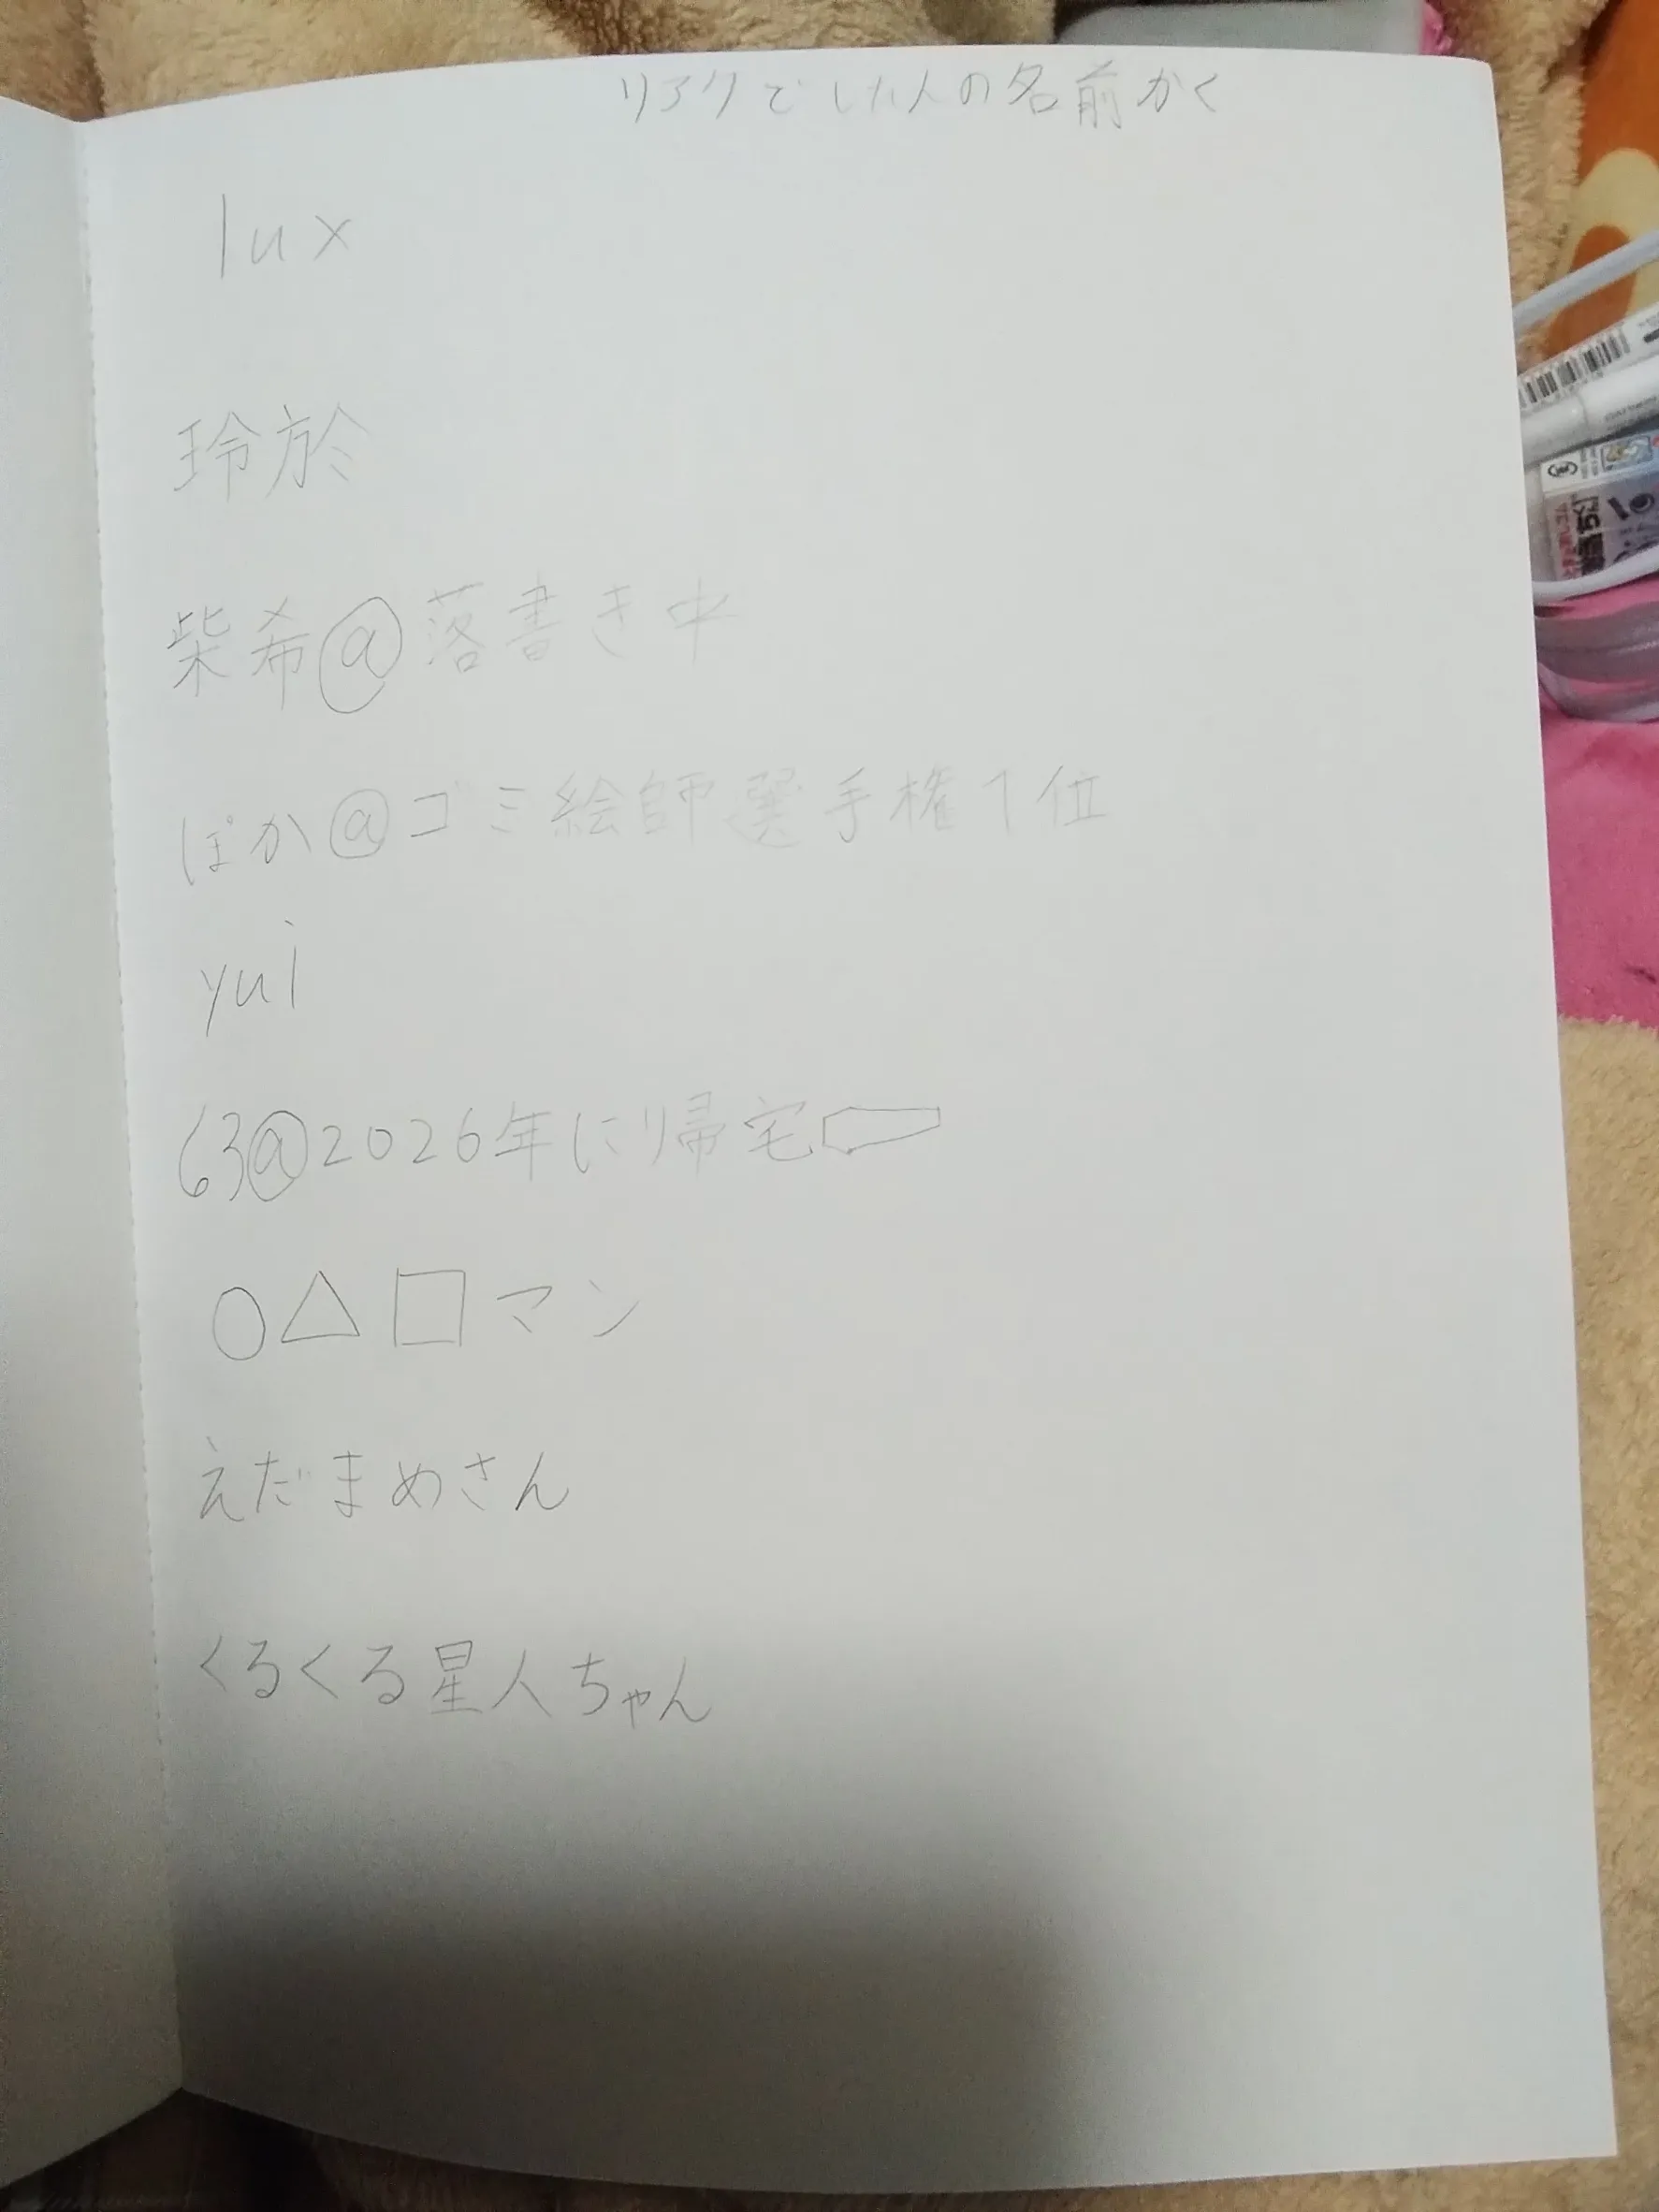 リアクでした人の名前かく
lux
玲於
柴希@落書き中
ぽか@ゴミ絵師選手権1位
yui
63@2026年に帰宅
○△□マン
えだまめさん
くるくる星人ちゃん